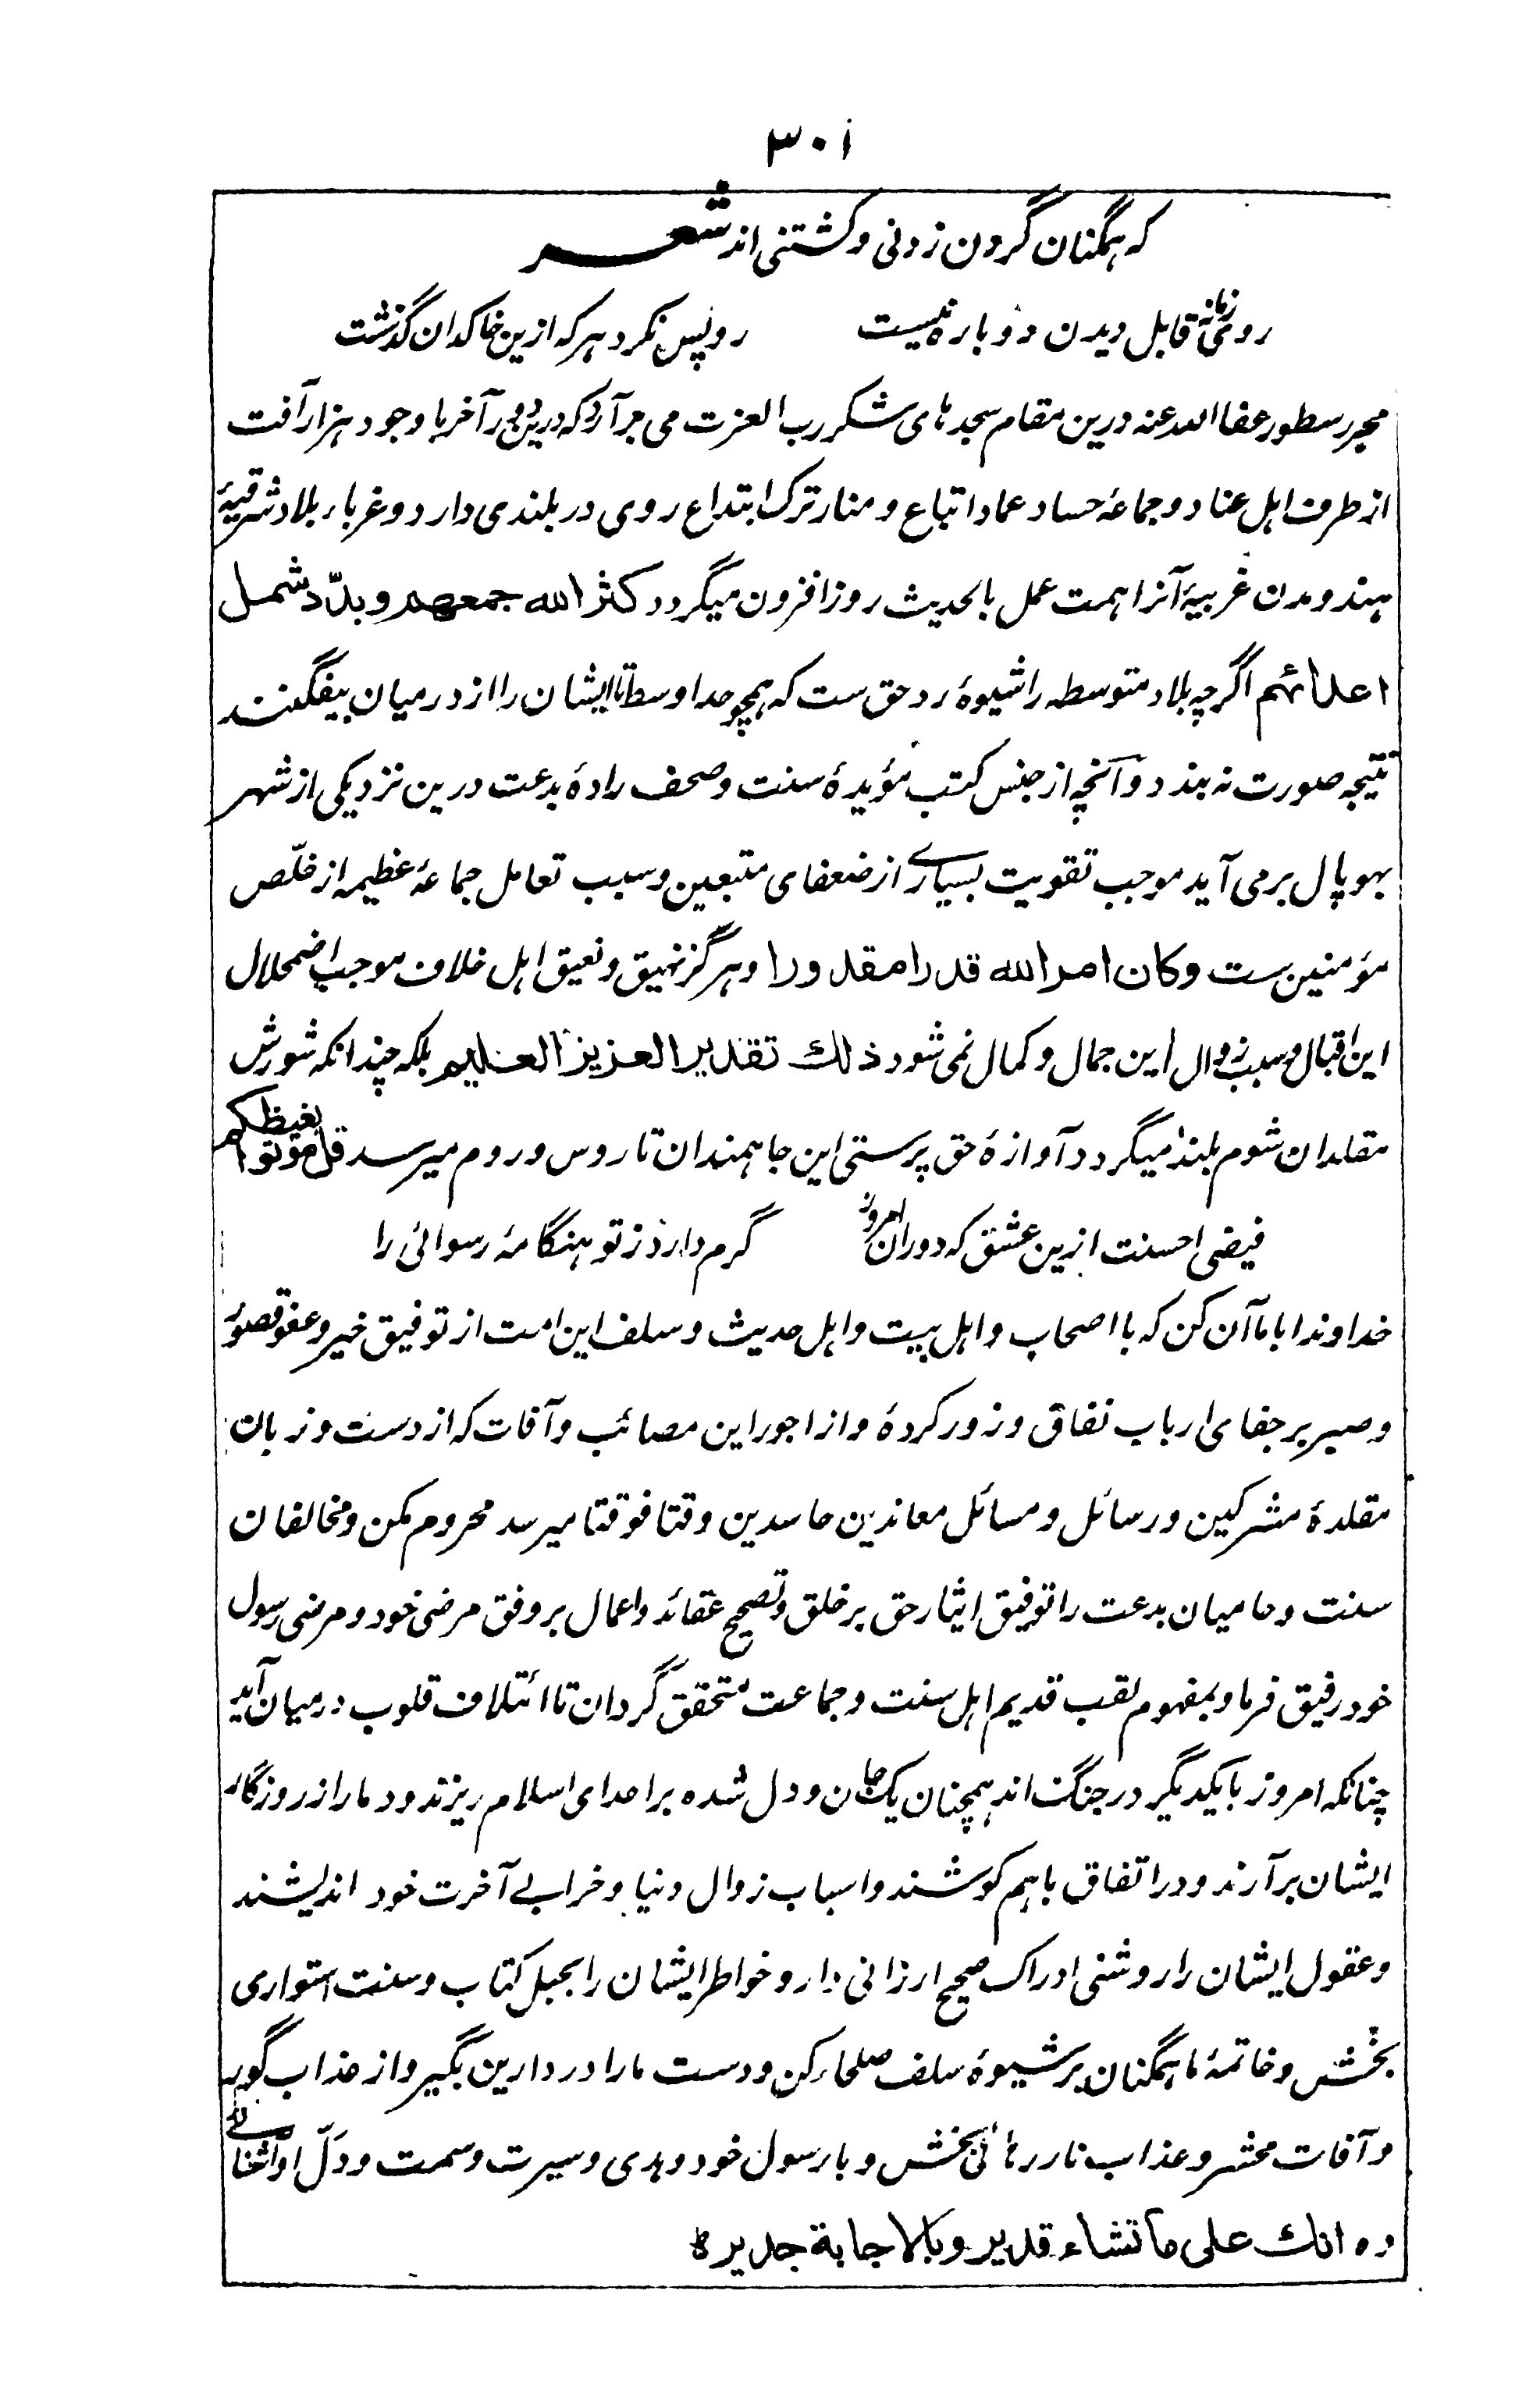 ۳۰۱
که همگنان گردن زدنی و کشتنی اند شعر
روی زمانه قابل دیدن دوباره نیست رو پس نکرد هر که ازین خاکدان گذشت
محرر سطور عفا الله عنه درین مقام سجدهای شکر رب العزت می برآرد که درین دور آخر با وجود هزار آفت
از طرف اهل عناد و جماعهٔ حساد عماد اتباع و منار ترک ابتداع روی در بلندی دارد و غرباء بلاد شرقیهٔ
هند و مدن غربیهٔ آنرا همت عمل بالحدیث روز افزون میگردد کثر الله جمعهم و بدّد شمل
اعدائهم اگرچه بلاد متوسطه را شیوهٔ رد حق ست که همچو حد اوسط تا ایشان را از درمیان بیفگنند
نتیجه صورت نه بندد و آنچه از جنس کتب مؤیدهٔ سنت و صحف رادهٔ بدعت درین نزدیکی از شهر
بهوپال برمی آید موجب تقویت بسیارے از ضعفای متبعین و سبب تعامل جماعهٔ عظیمه از خلّص
مؤمنین ست وکان امر الله قدرا مقدورا و هرگز نهیق و نعیق اهل خلاف موجب اضمحلال
این اقبال و سبب زوال این جمال و کمال نمی شود ذلك تقدیر العزیز العلیم بلکه چندانکه شورش
مقلدان شوم بلند میگردد آوازهٔ حق پرستی این جا همندان تا روس و روم میرسد قل موتوا بغیظکم
فیضی احسنت ازین عشق که دوران امروز گرم دارد ز تو هنگامهٔ رسوائی را
خداوندا باما آن کن که با اصحاب و اهل بیت و اهل حدیث و سلف این امت از توفیق خیر و عفو قصور
و صبر بر جفای ارباب نفاق و زور کردهٔ و از اجور این مصائب و آفات که از دست و زبان
مقلدهٔ مشرکین و رسائل و مسائل معاندین حاسدین وقتا فوقتا میرسد محروم مکن و مخالفان
سنت و حامیان بدعت را توفیق ایثار حق بر خلق و تصحیح عقائد و اعمال بر وفق مرضی خود و مرضی رسول
خود رفیق فرما و بمفهوم لقب قدیم اهل سنت و جماعت متحقق گردان تا ائتلاف قلوب درمیان آید
چنانکه امروز بایکدیگر در جنگ اند همچنان یک جان و دل شده بر اعدای اسلام ریزند و دمار از روزگار
ایشان برآرند و در اتفاق باهم کوشند و اسباب زوال دنیا و خرابے آخرت خود اندیشند
و عقول ایشان را روشنی ادراک صحیح ارزانی دار و خواطر ایشان را بحبل کتاب و سنت استواری
بخش و خاتمهٔ ما همگنان بر شیوهٔ سلف صلحاء کن و دست ما را در دارین بگیر و از عذاب گور
و آفات محشر و عذاب نار رهائی بخش و با رسول خود و هدی و سیرت و سمت و دَلّ او آشنائے
ده انك علی ما تشاء قدیر و بالاجابة جدیر ه